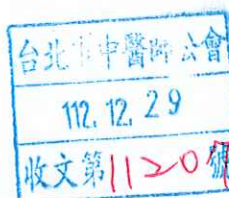 台北市中醫師公會
112.12.29
收文第1120號